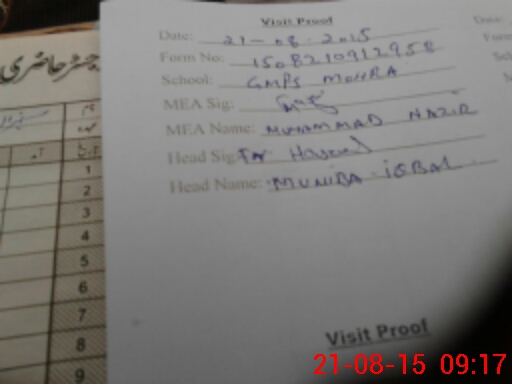 Visit Proof
Date: 21-08-2015
Form No: 1508210912958
School: GMPS MOHRA
MEA Sig:
MEA Name: MUHAMMAD NAZIR
Head Sig: For
Head Name: MUNIBA IQBAL
Visit Proof
Date:
رجسٹر حاضری
نام
عہدہ
تاریخ
آمد
1
2
3
4
5
6
7
8
9
21-08-15 09:17